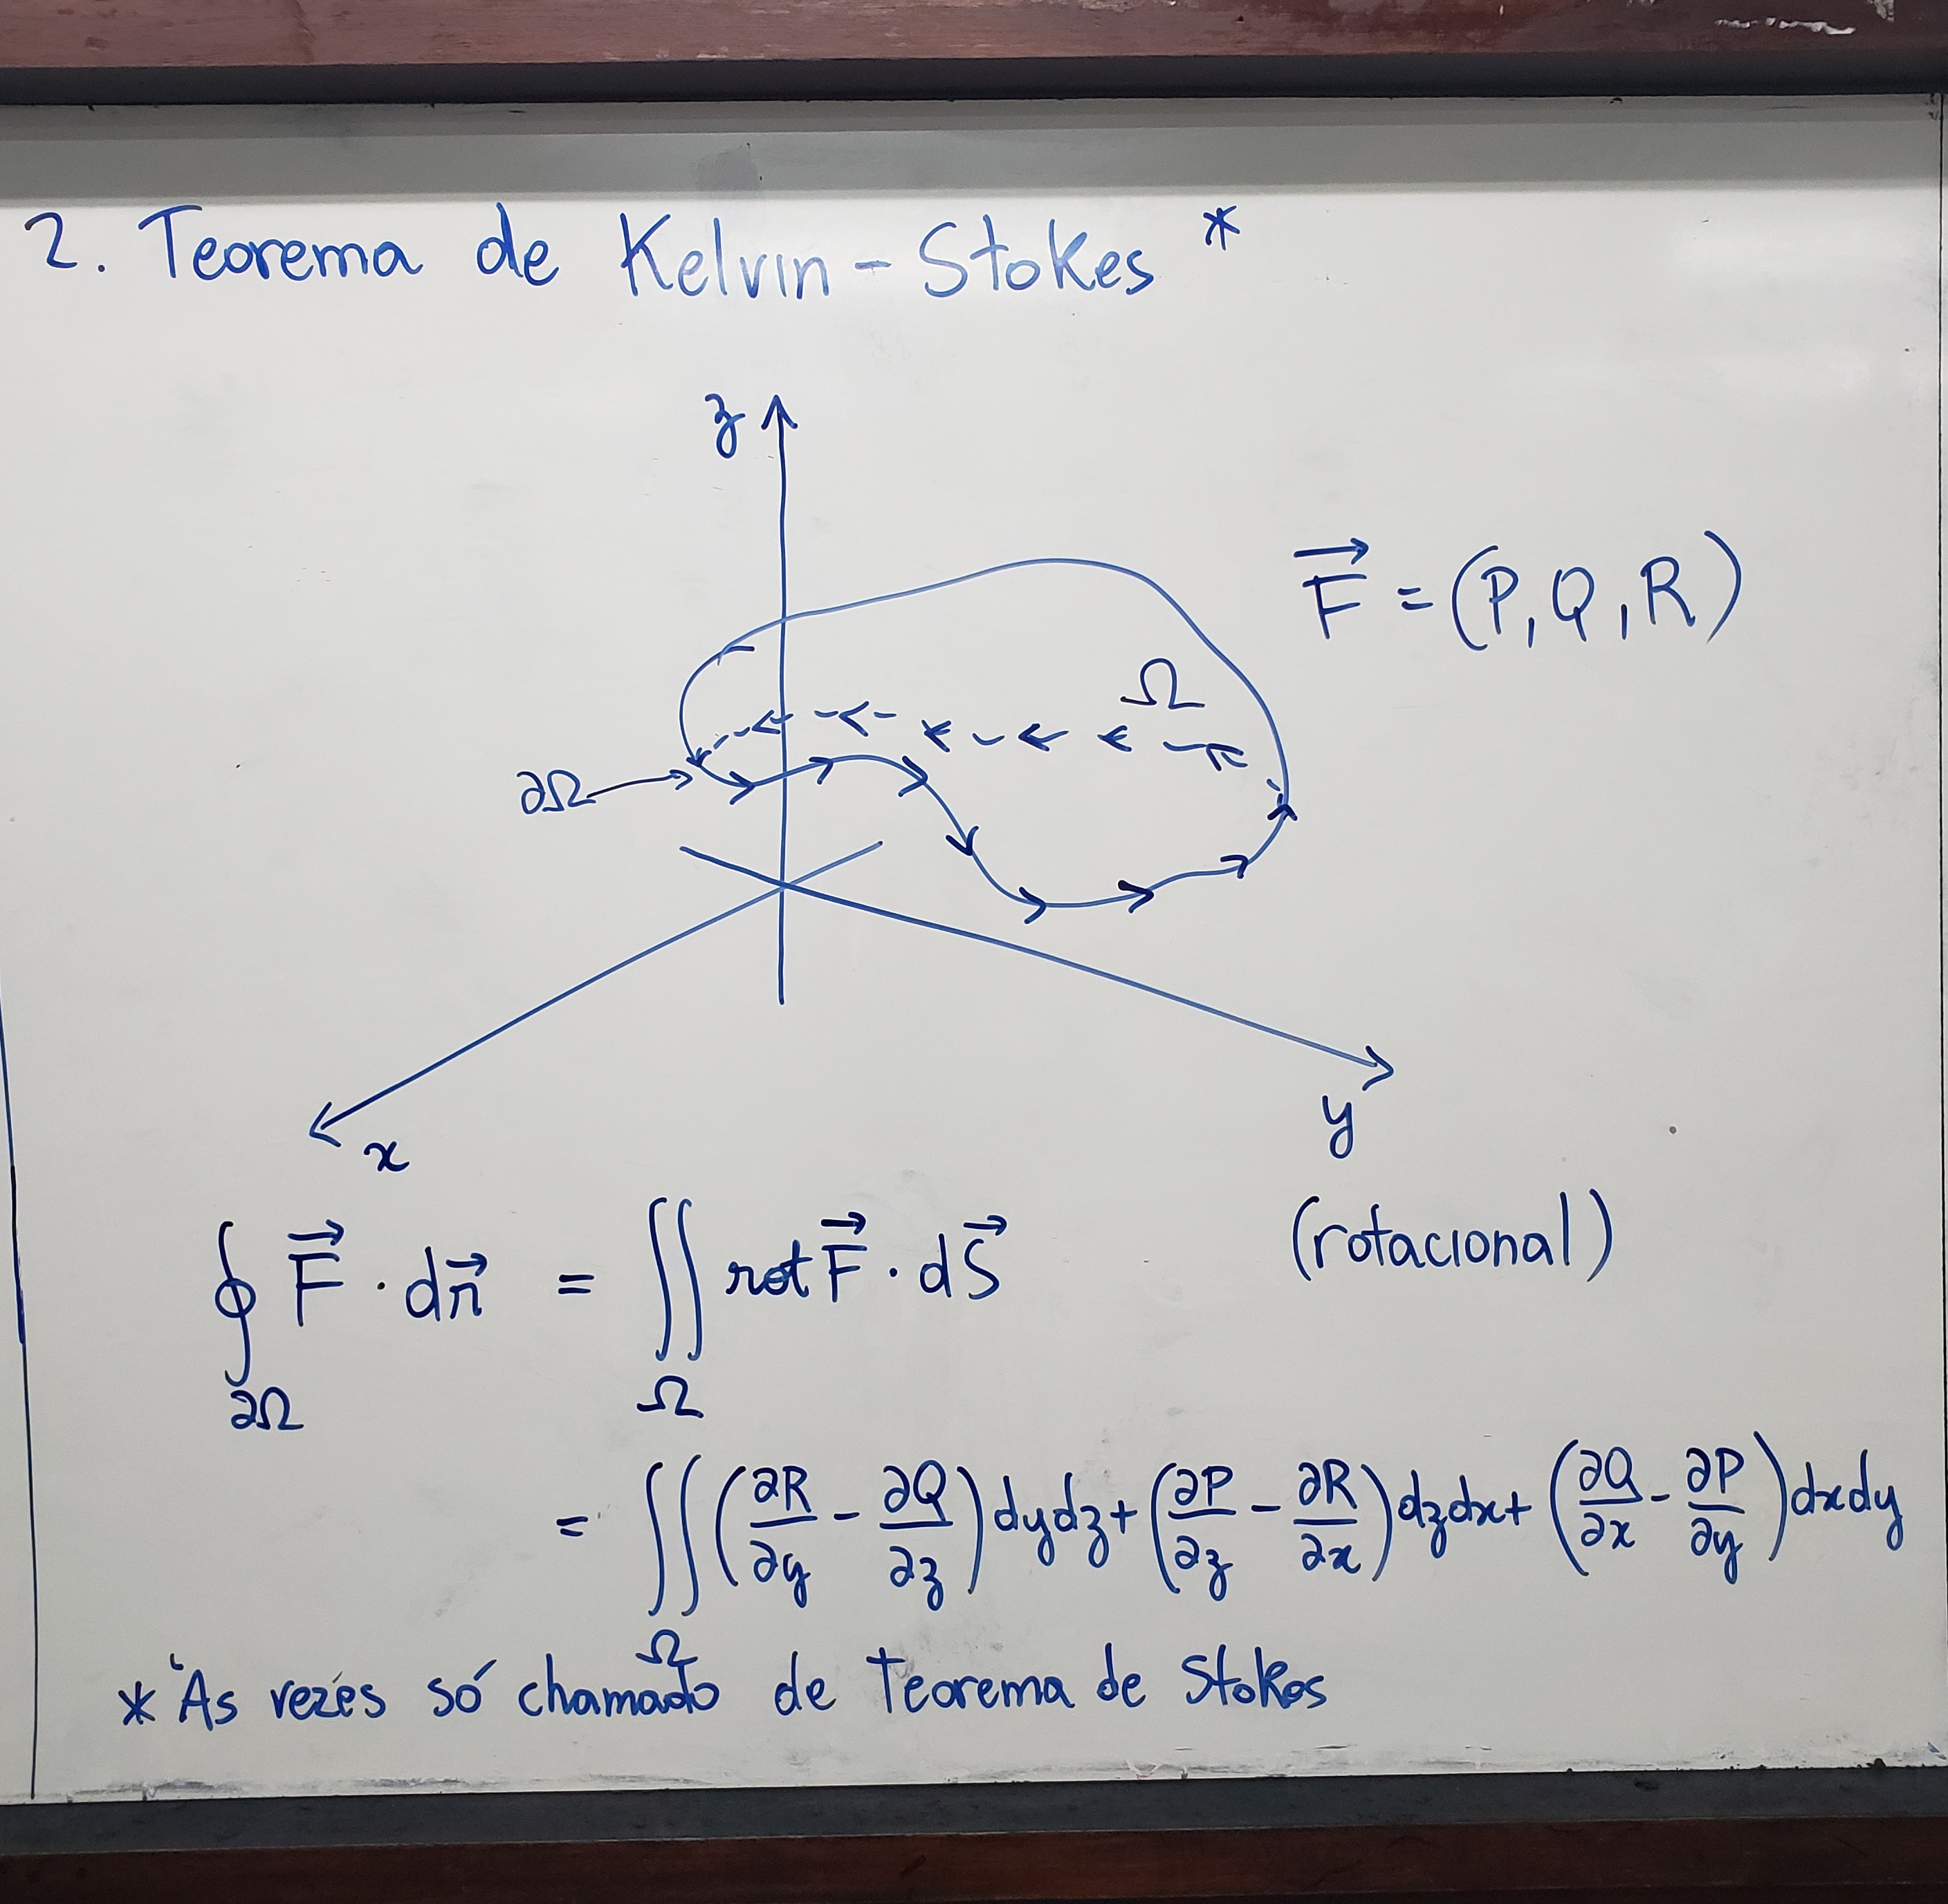 2. Teorema de Kelvin-Stokes *
z
F⃗ = (P, Q, R)
Ω
∂Ω
x
y
∮_∂Ω F⃗ · dr⃗ = ∬_Ω rot F⃗ · dS⃗ (rotacional)
= ∬_Ω (∂R/∂y - ∂Q/∂z) dydz + (∂P/∂z - ∂R/∂x) dzdx + (∂Q/∂x - ∂P/∂y) dxdy
* Às vezes só chamado de Teorema de Stokes